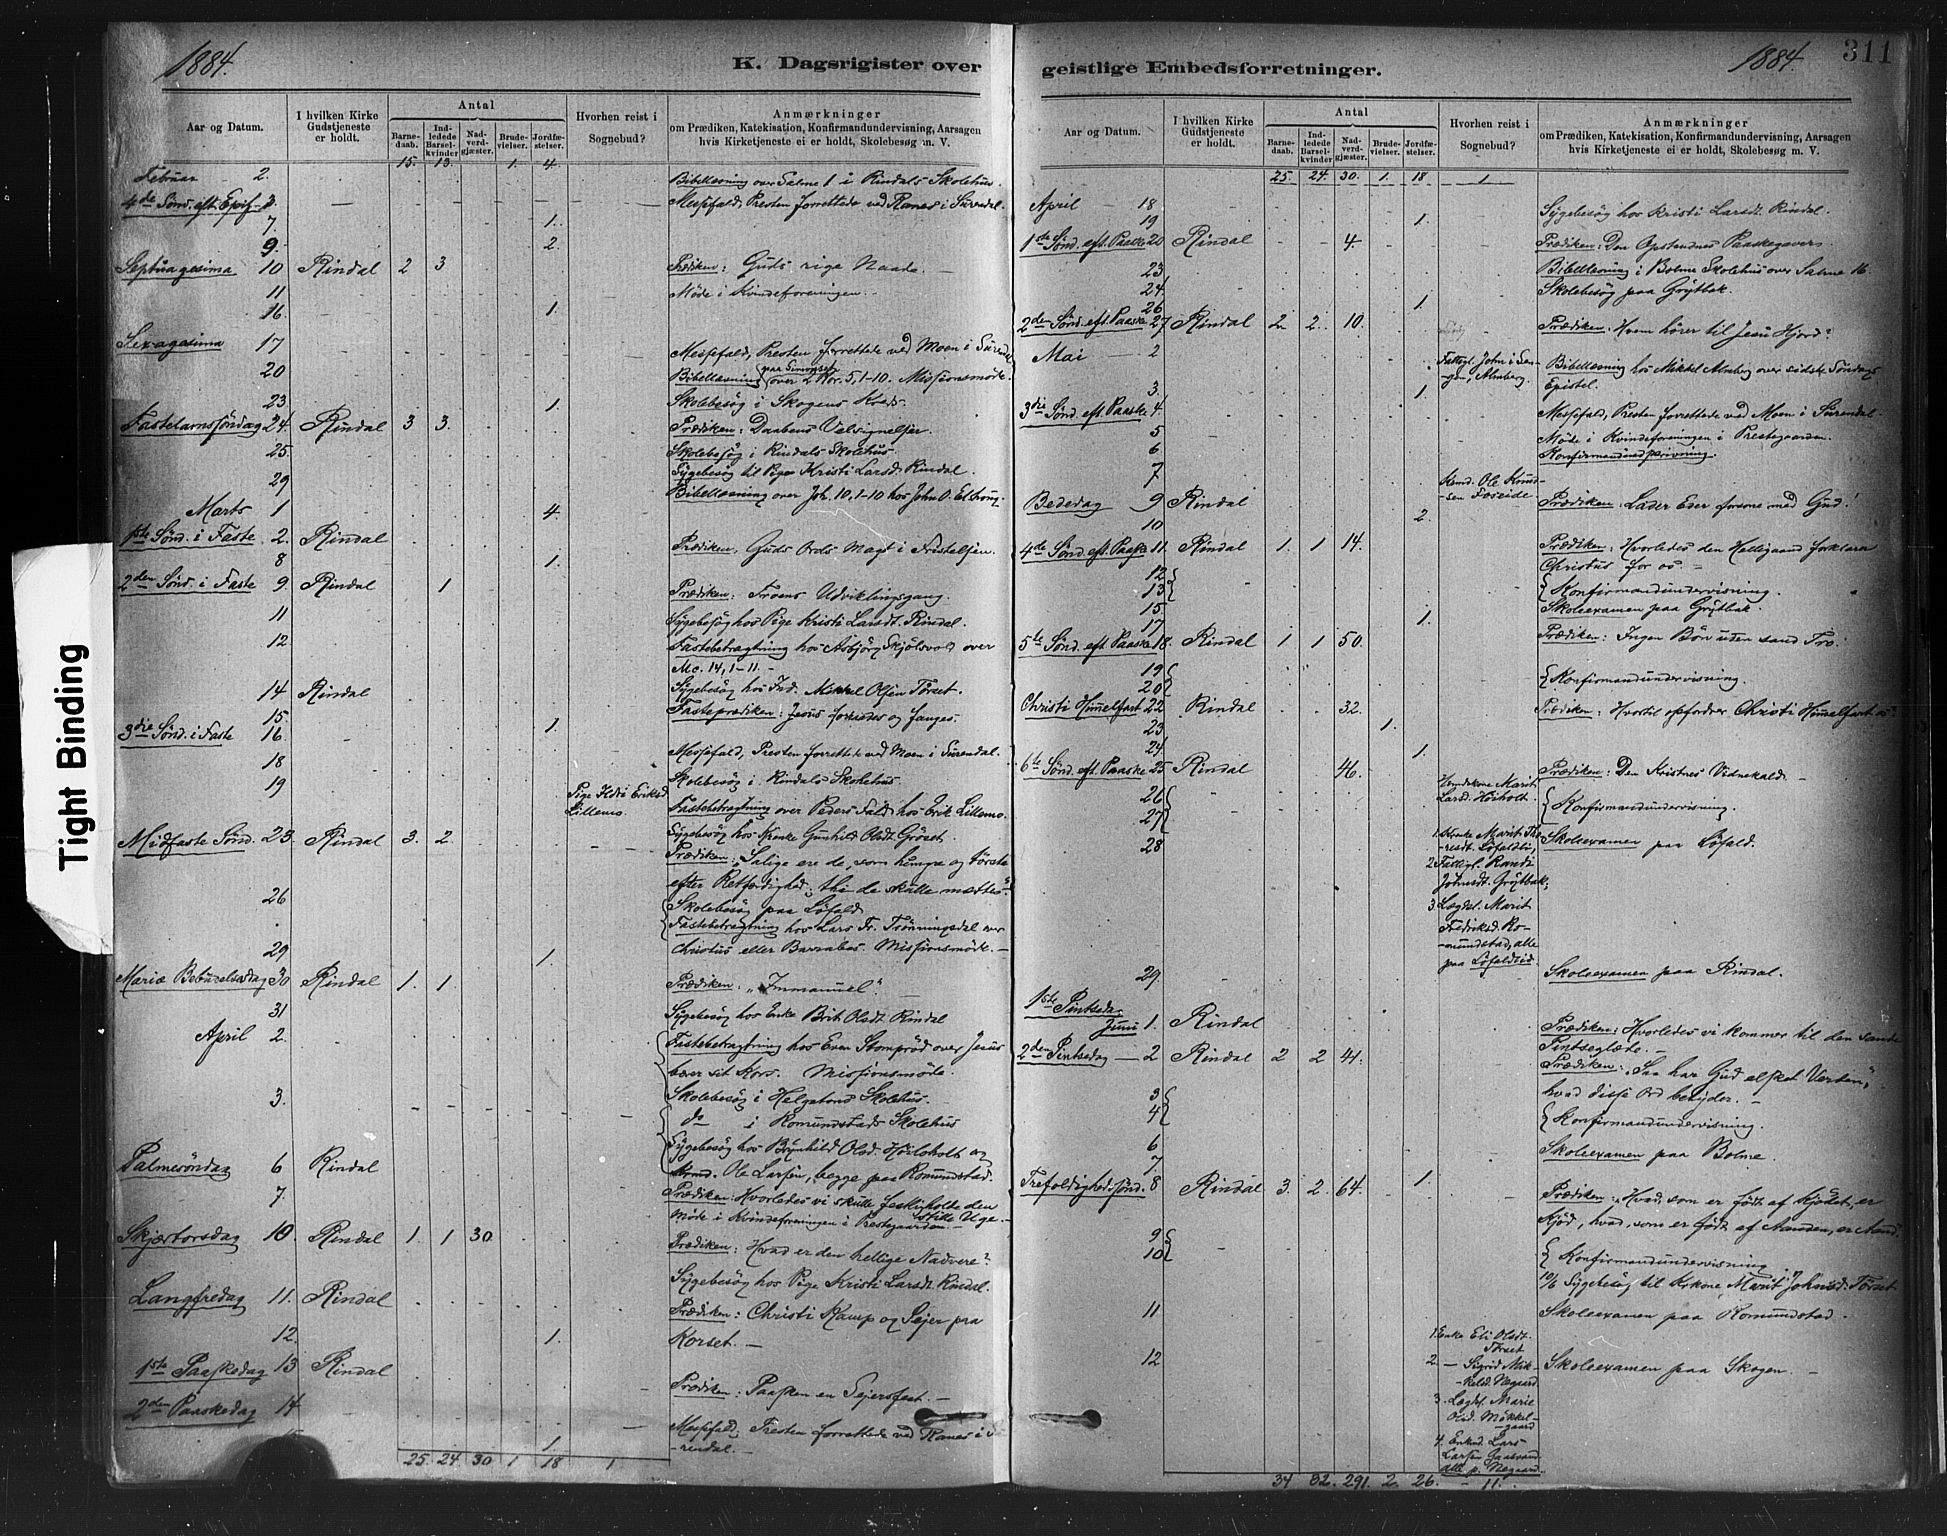 1884.
K. Dagsrigister over
Aar og Datum.
I hvilken Kirke Gudstjeneste er holdt.
Antal
Barnedaab.
Indledede Barselkvinder
Nadverdgjæster.
Brudevielser.
Jordfæstelser.
Hvorhen reist i Sognebud?
Anmærkninger
om Prædiken, Katekisation, Konfirmandundervisning, Aarsagen
hvis Kirketjeneste ei er holdt, Skolebesøg m. V.
15. 13. 1. 4.
Februar 2. Bibellæsning over Salme 1 i Rindals Skolehus.
4de Sønd. eft. Epif. 3. Messefald, Presten forrettede ved Ranes i Surendal.
7. 1.
9. 2.
Septuagesima 10 Rindal 2 3 Prædiken: Guds rige Naade.
11 Møde i Kvindeforeningen.
16. 1.
Sexagesima 17 Messefald, Presten forrettede ved Moen i Surendal
20 Bibellæsning over 2 Kor. 5, 1-10. Missionsmøde.
23 1. Skolebesøg i Skogens Kreds.
Fastelavnssøndag 24. Rindal 3 3. Prædiken: Daabens Velsignelser.
25. Skolebesøg i Rindals Skolehus.
29 Sygebesøg til Pige Kristi Larsdt. Rindal.
Bibellæsning over Joh. 10, 1-10 hos John O.
Marts 1 4.
1ste Sønd. i Faste 2. Rindal Prædiken: Guds Ords Magt i Fristelsen.
8 1.
2den Sønd. i Faste 9. Rindal 1 Prædiken: Troens Udviklingsgang.
11 Sygebesøg hos Pige Kristi Larsdt. Rindal.
12 Fastebetragtning hos Asbjørg Skjølsvold over
Mc. 14, 1-11.
14 Rindal Sygebesøg hos Mikkel Olsen Tørset.
15. 1. Fasteprædiken: Jesus forrædes og fanges.
3die Sønd. i Faste 16 Messefald, Presten forrettede ved Moen i Surendal.
18 Skolebesøg i Rindals Skolehus
19 Pige Eriksd. Lillemo. Fastebetragtning over Peders Fald hos Erik Lillemo.
Sygebesøg hos Gunhild Olsdt. Grøset.
Midfaste Sønd. 23. Rindal 3. 2. Prædiken: „Salige ere de, som hungre og tørste
efter Retfærdighed; thi de skulle mættes."
26 Skolebesøg paa Løfald.
Fastebetragtning hos Lars Fr. Trønningsdal over
Christus eller Barrabas. Missionsmøde.
29 1.
Mariæ Bebudelsesdag 30 Rindal 1. 1 Prædiken: „Immanuel".
31 Sygebesøg hos Enke Brit Olsdt. Rindal
April 2. Fastebetragtning hos Even Stomprød over Jesus
bærer sit Kors. Missionsmøde.
3. Skolebesøg i Helgetund Skolehus.
do i Romundstads Skolehus
Sygebesøg hos Brynhild Olsd. og
Ole Larsen, begge paa Romundstad.
Palmesøndag 6 Rindal Prædiken: Hvorledes vi skulle høitideligholde den stille Uge.
7. Møde i Kvindeforeningen i Prestegaarden.
Skjærtorsdag 10. Rindal 1. 1 30 Prædiken: Hvad er den hellige Nadvere?
Sygebesøg hos Pige Kristi Larsdt. Rindal.
Langfredag 11. Rindal Prædiken: Christi Kamp og Sejer paa
12. 1. Korset.
1ste Paaskedag 13 Rindal Prædiken: Paasken en Sejersfest.
2den Paaskedag 14 Messefald; Presten forrettede ved Ranes i Su-
1. -rendal.
25. 24 30 1 18 1
1884.
311
geistlige Embedsforretninger.
Aar og Datum.
I hvilken Kirke Gudstjeneste er holdt.
Antal
Barnedaab.
Indledede Barselkvinder
Nadverdgjæster.
Brudevielser.
Jordfæstelser.
Hvorhen reist i Sognebud?
Anmærkninger
om Prædiken, Katekisation, Konfirmandundervisning, Aarsagen
hvis Kirketjeneste ei er holdt, Skolebesøg m. V.
25. 24. 30. 1. 18 1
April 18 Sygebesøg hos Kristi Larsdt. Rindal.
19 1.
1ste Sønd. eft. Paaske 20 Rindal 4. Prædiken: Den Opstandnes Paaskegaver.
23 Bibellæsning i Bolme Skolehus over Salme 16.
24 Skolebesøg paa Grytbak.
26 1.
2den Sønd. eft. Paaske 27 Rindal 2. 2. 10. Prædiken: Hvem hører til Jesu Hjord?
Mai 2 Fattigl. John Almberg. Bibellæsning hos Mikkel Almberg over sidste Søndags
Epistel.
3. 1
3die Sønd. eft. Paaske 4. Messefald, Presten forrettede ved Moen i Surendal.
5 Møde i Kvindeforeningen i Prestegaarden.
6 Konfirmandindskrivning.
7 Ole Knudsen Foseide
Bededag 9 Rindal Prædiken: Lader Eder forsone med Gud!
10 2.
4de Sønd. eft. Paaske 11. Rindal 1. 1 14. Prædiken: Hvorledes den Helligaand forklarer
Christus for os
12
13 Konfirmandundervisning.
15 Skoleexamen paa Grytbak.
17 1.
5te Sønd. eft. Paaske 18. Rindal 1 1 50. Prædiken: Ingen Bøn uten sand Tro.
19
20 Konfirmandundervisning.
Christi Himmelfart 22 Rindal 32. Prædiken: Hvortil opfordrer Christi Himmelfart os?
23 1.
24 1.
6te Sønd. eft. Paaske 25 Rindal 46. Prædiken: Den Kristnes Vidnekald.
26 Marit Larsd.
27 Konfirmandundervisning.
28 1. Enke Marit Løfaldli, Skoleexamen paa Løfald.
2. Fattigl. Randi Johnsdt. Grytbak,
3. Lægdsl. Marit Fredriksd. Romundstad, alle paa Løfaldlid.
29 Skoleexamen paa Rindal.
1ste Pintsedag
Juni 1. Rindal Prædiken: Hvorledes vi kommer til den sande
Pintseglæde.
2den Pintsedag 2 Rindal 2 2 41. Prædiken: „Saa har Gud elsket Verden",
hvad disse Ord betyder.
3
4 Konfirmandundervisning.
6 Skoleexamen paa Bolme.
7 1.
Trefoldighedssønd. 8 Rindal 3. 2. 64. Prædiken: „Hvad, som er født af Kjødet, er
Kjød, hvad, som er født af Aanden, er Aand.
9
10 Konfirmandundervisning
10/6 Sygebesøg til Marit Johnsd. Tørset
11 Skoleexamen paa Romundstad.
12 1. Enke Eli Olsdt. Tørset Skoleexamen paa Skogen
2. — Sigrid Mikkelsd. Negaard
3. Lægdsl. Marie Olsd. Møkkelgaard
4. Lars Larsen
alle p. Negaard.
34 32. 291. 2. 26. 11.
Tight Binding